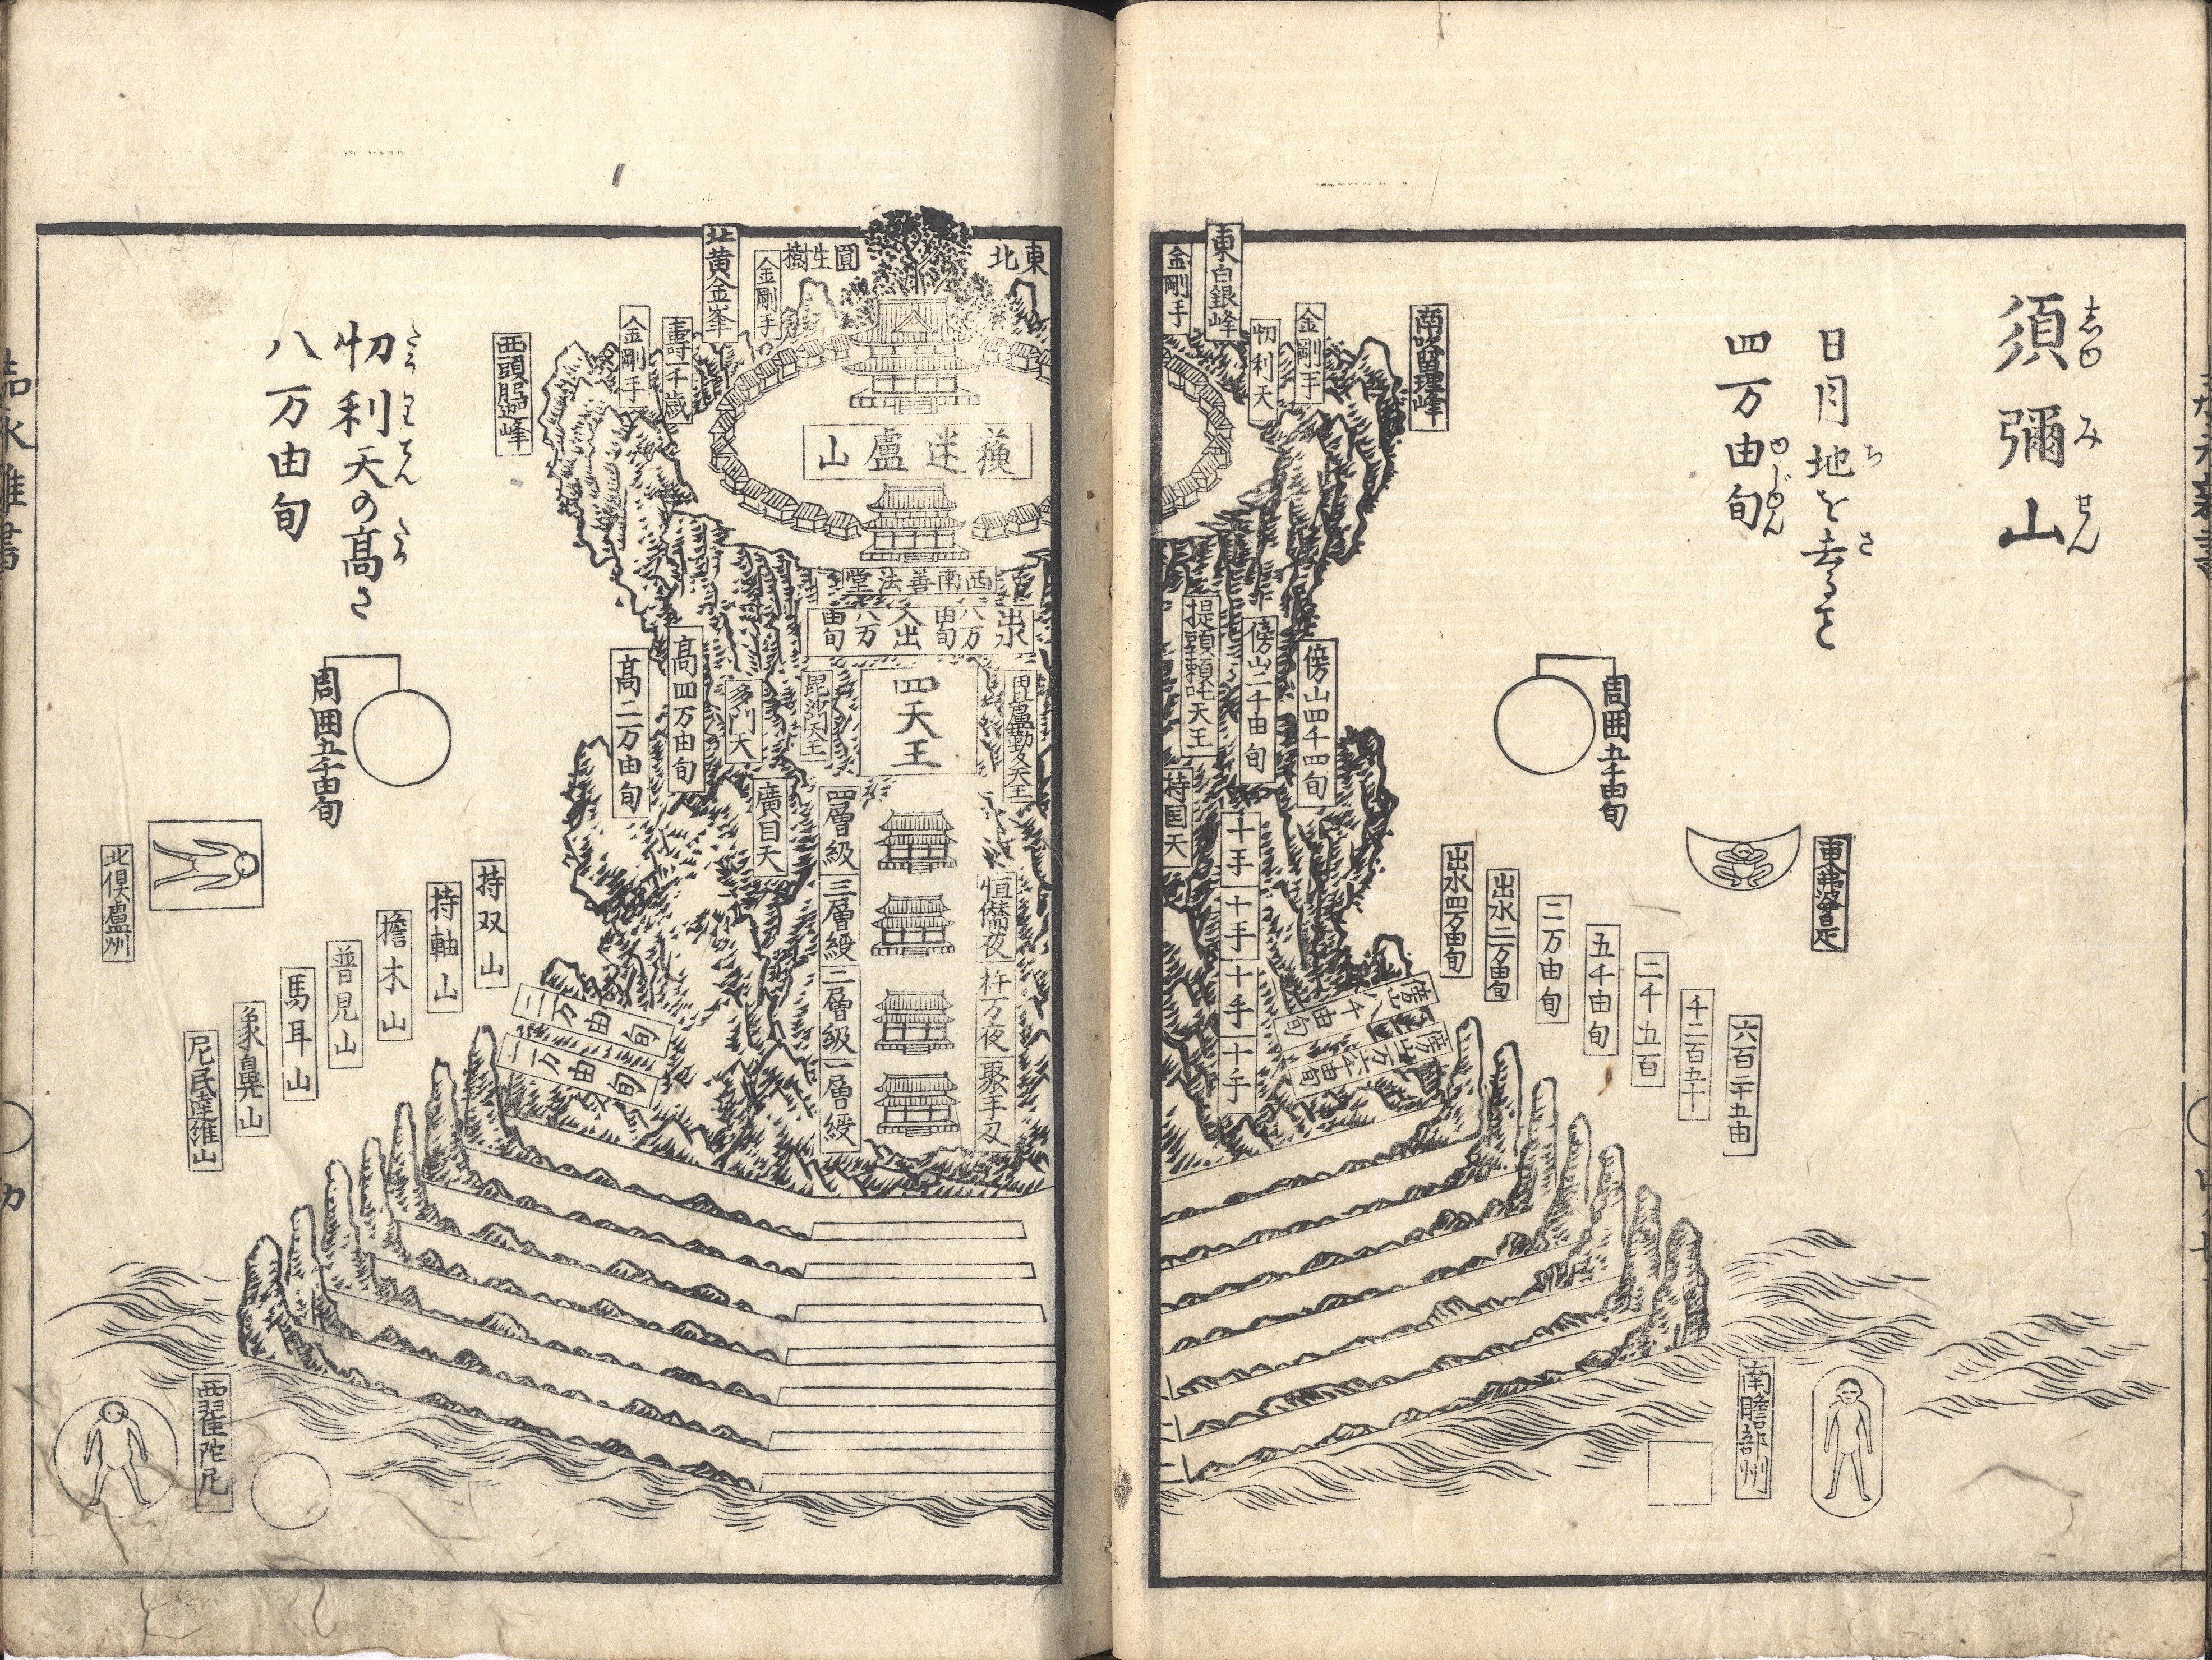 須彌山
しゆみせん
日月地を去ること
ちさ
四万由旬
ゆじゆん
周囲五千由旬
東弗婆提
南吠瑠璃峰
金剛手
忉利天
東白銀峰
金剛手
傍山四千四旬
傍山二千由旬
提頭頼吒天王
持国天
十手
十手
十手
十手
出水四万由旬
出水二万由旬
二万由旬
五千由旬
二千五百
千二百五十
六百二十五由
南贍部州
東北
圓生樹
金剛手
北黄金峯
壽一千歳
金剛手
西頭胝迦峰
蘓迷盧山
西南善法堂
出水八万由旬
入出八万由旬
四天王
毘盧勒叉天王
毘沙門天王
多門天
廣目天
高四万由旬
高二万由旬
四層級
三層級
二層級
一層級
恒憍夜
杵万夜
聚手刄
二万由旬
一万由旬
忉利天の高さ
たうりてんたか
八万由旬
周囲五千由旬
持双山
持軸山
擔木山
普見山
馬耳山
象鼻山
尼民陸維山
北倶盧州
西瞿陀尼